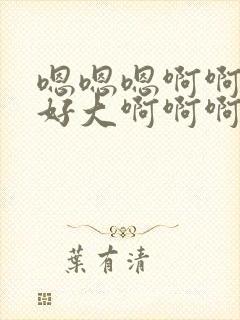 嗯嗯嗯啊啊
好大啊啊啊
葉有清